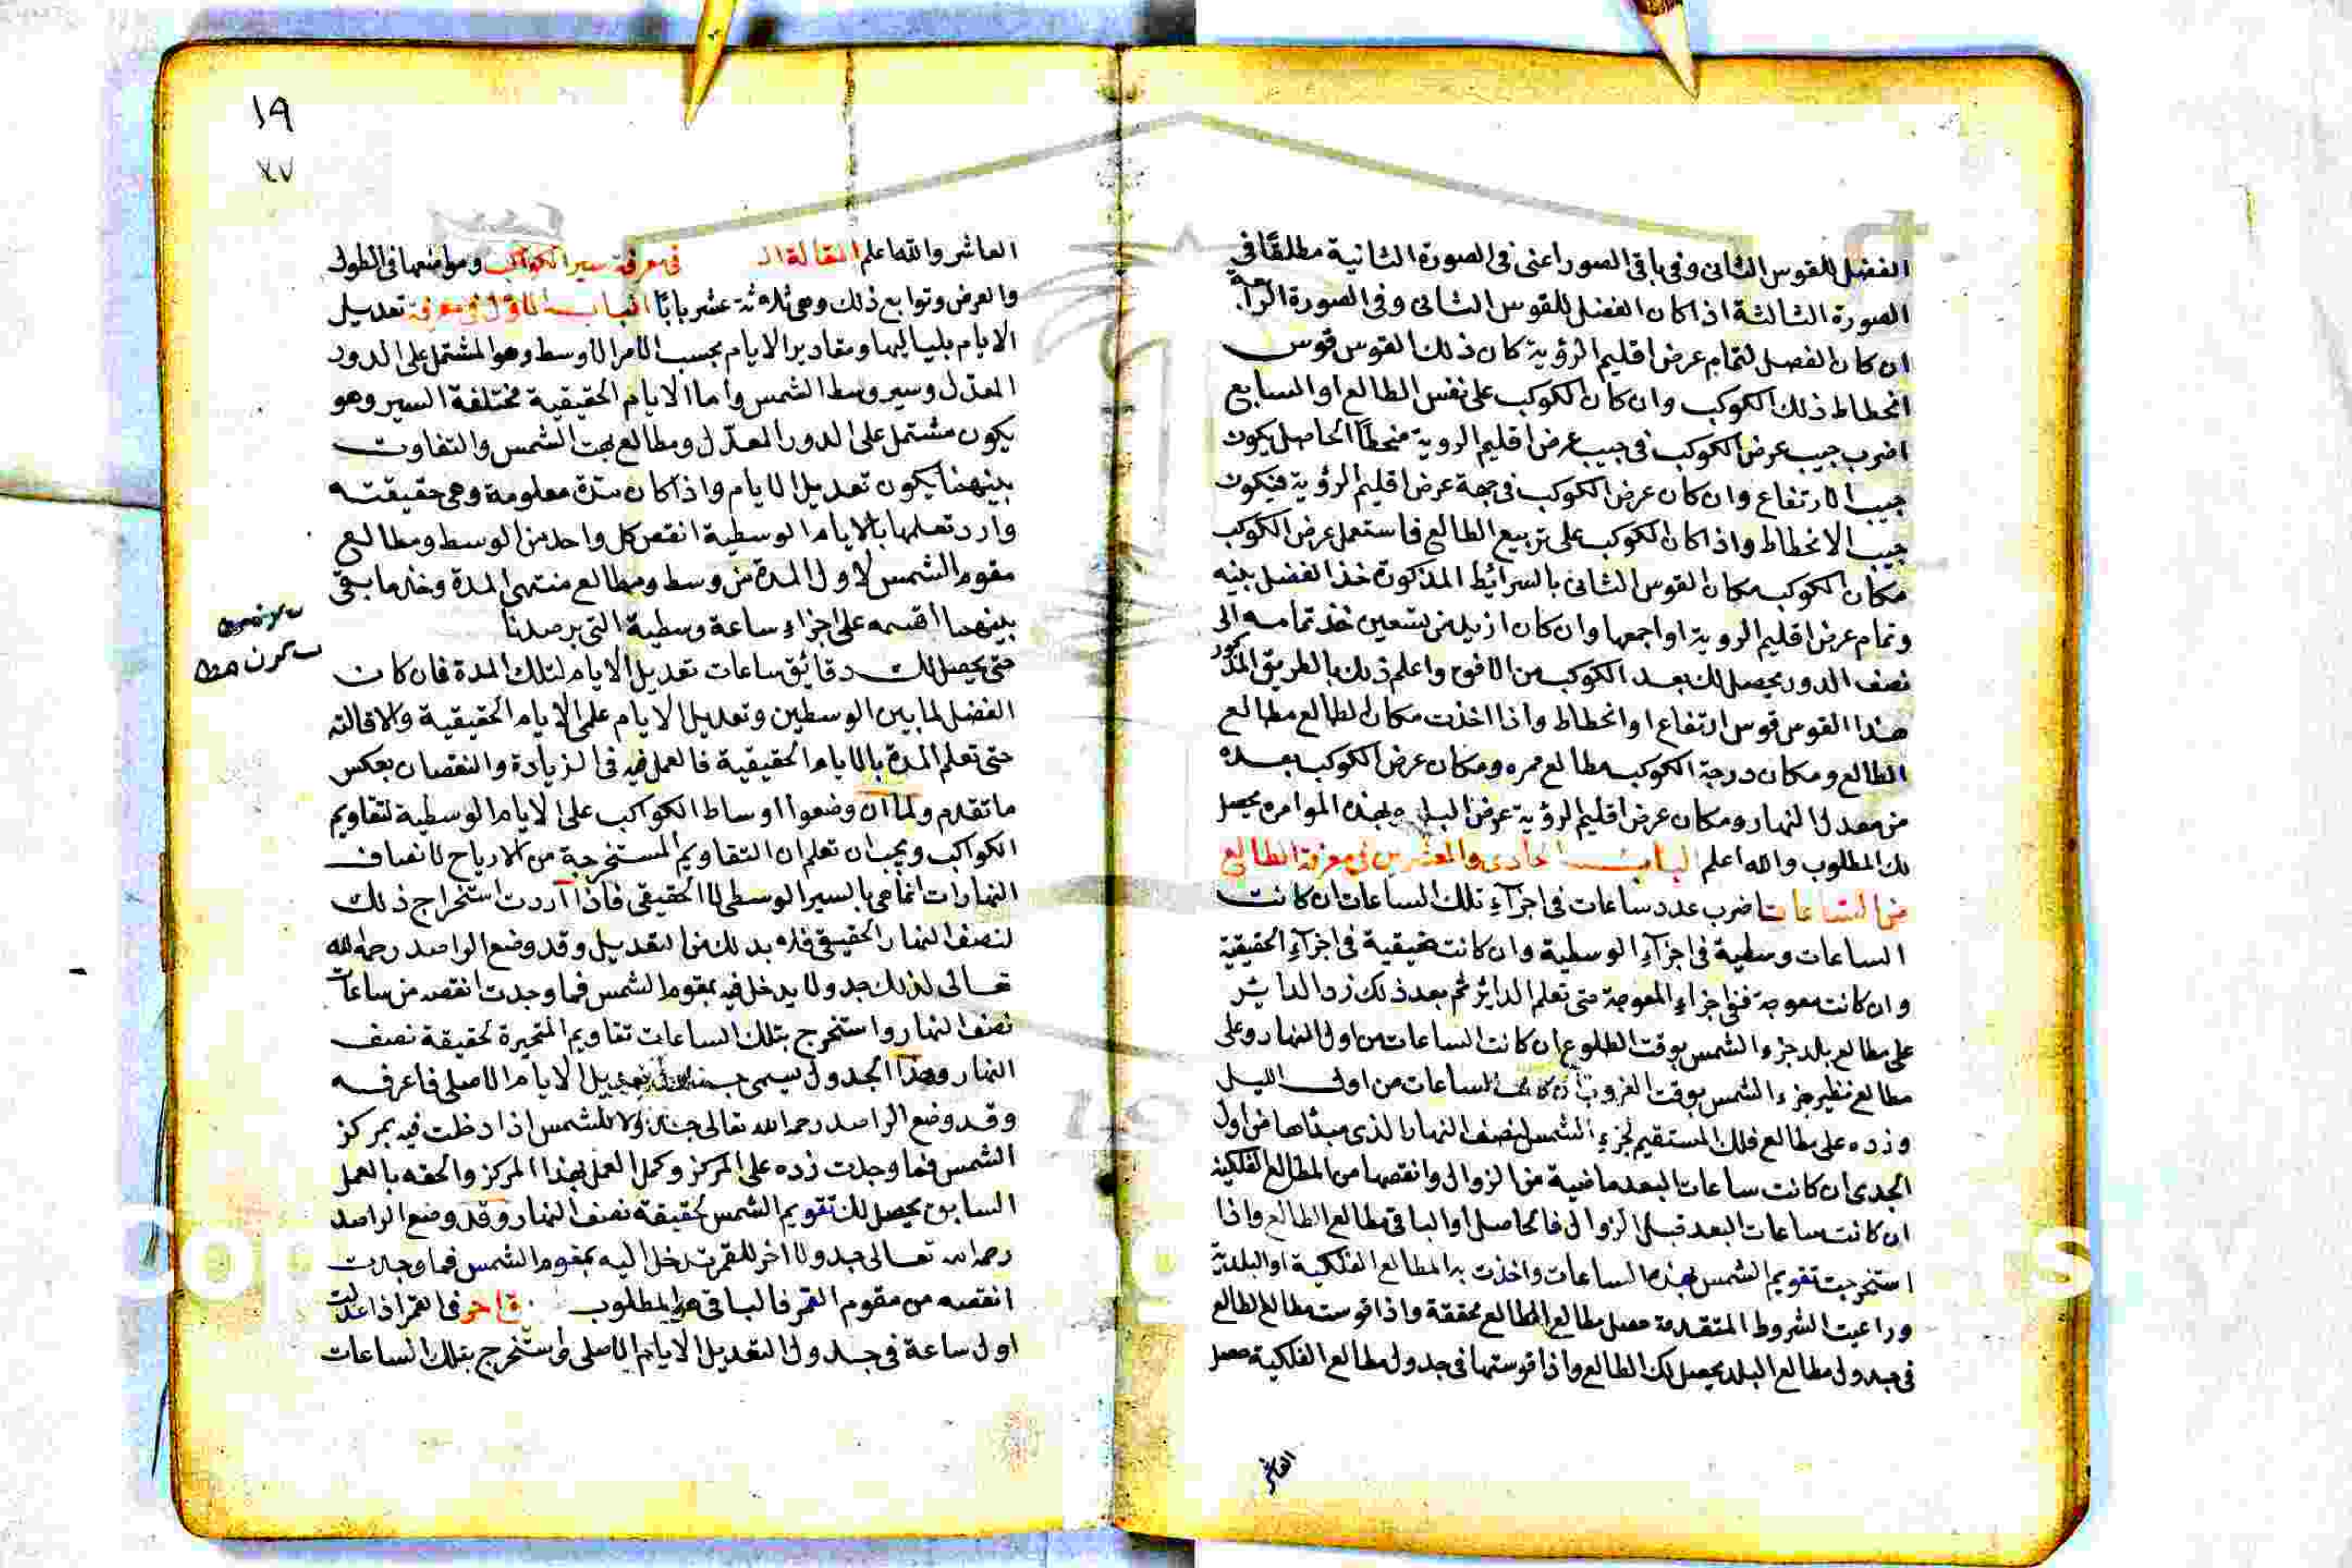 الفضل للقوس الثانى وفى باقى الصور اعنى فى الصورة الثانية مطلقًا فى
الصورة الثالثة اذا كان الفضل للقوس الثانى وفى الصورة الرابعة
ان كان الفضل لتمام عرض اقليم الرؤية كان ذلك القوس قوس
انحطاط ذلك الكوكب وان كان الكوكب على نفس الطالع او السابع
اضرب جيب عرض الكوكب فى جيب عرض اقليم الروية منحطاً الحاصل يكون
جيب الارتفاع وان كان عرض الكوكب فى جهة عرض اقليم الرؤية فيكون
جيب الانحطاط واذا كان الكوكب على تربيع الطالع فاستعمل عرض الكوكب
مكان الكوكب مكان القوس الثانى بالسرائط المذكورة خذ الفضل بينه
وتمام عرض اقليم الروية او اجمعها وان كان ازيد من تسعين خذ تمامه الى
نصف الدور يحصل لك بعد الكوكب من الافق واعلم ذلك بالطريق المذكور
هذا القوس قوس ارتفاع او انحطاط واذا اخذت مكان الطالع مطالع
الطالع ومكان درجة الكوكب مطالع ممره ومكان عرض الكوكب بعده
من معدل النهار ومكان عرض اقليم الرؤية عرض البلد وبهذه الموامره يحصل
لك المطلوب والله اعلم الباب الحادى والعشرين فى معرفة الطالع
من الساعات اضرب عدد ساعات فى اجزآءِ تلك الساعات ان كانت
الساعات وسطية فى اجزآءِ الوسطية وان كانت حقيقية فى اجزآءِ الحقيقية
وان كانت معوجة ففى اجزاءِ المعوجة حتى تعلم الدائر ثم بعد ذلك زد الدائر
على مطالع بالد جزء الشمس بوقت الطلوع ان كانت الساعات من اول النهار وعلى
مطالع نظير جزء الشمس بوقت الغروب ان كانت الساعات من اول الليل
وزده على مطالع فلك المستقيم لجزءِ الشمس لنصف النهار الذى مبدأها من اول
الجدى ان كانت ساعات البعد ماضية من الزوال وانقصها من المطالع الفلكية
ان كانت ساعات البعد قبل الزوال فالحاصل او الباقى مطالع الطالع واذا
استخرجت تقويم الشمس بهذه الساعات واخذت به المطالع الفلكية او البلدية
وراعيت الشروط المتقدمة حصل مطالع الطالع محققة واذا قوست مطالع الطالع
فى جدول مطالع البلد يحصل لك الطالع واذا قوستها فى جدول مطالع الفلكية حصل
العاشر
١٩
العاشر والله اعلم المقالة الـ فى معرفة سير الكواكب ومواضعها فى الطول
والعرض وتوابع ذلك وهى ثلاثة عشر بابًا الباب الاول فى معرفة تعديل
الايام بلياليها ومقادير الايام بحسب الامر الاوسط وهو المشتمل على الدور
المعدل وسير وسط الشمس وأما الايام الحقيقية مختلفة السير وهو
يكون مشتمل على الدور المعدّل ومطالع بهت الشمس والتفاوت
بينهما يكون تعديل الايام واذا كان مدّة معلومة وهى حقيقته
وارد تعلمها بالايام الوسطية انقص كل واحد من الوسط ومطالع
مقوم الشمس لاول المدة من وسط ومطالع منتهى المدة وخذ ما بقى
بينهما اقسمه على اجزاءِ ساعة وسطية التى برصدنا
حتى يحصل لك دقائق ساعات تعديل الايام لتلك المدة فان كان
الفضل لما بين الوسطين وتعديل الايام على الايام الحقيقية والا قالته
حتى تعلم المدة بالايام الحقيقية فالعمل فيه فى الزيادة والنقصان بعكس
ما تقدم ولما ان وضعوا اوساط الكواكب على الايام الوسطية لتقاويم
الكواكب ويجب ان تعلم ان التقاويم المستخرجة من الازياج لانصاف
النهارات انما هى بالسير الوسطى لا الحقيقى فاذا اردت استخراج ذلك
لنصف النهار الحقيقى فلا بد لك من التعديل وقد وضع الراصد رحمه الله
تعالى لذلك جدولا يدخل فيه بمقوم الشمس فما وجدت انقصه من ساعات
نصف النهار واستخرج بتلك الساعات تقاويم المتحيرة لحقيقة نصف
النهار وهذا الجدول يسمى تعديل الايام الاصلى فاعرفه
وقد وضع الراصد رحمه الله تعالى جدولا للشمس اذا دخلت فيه بمركز
الشمس فما وجدت زده على المركز وكمل العمل بهذا المركز والحقه بالعمل
السابق يحصل لك تقويم الشمس لحقيقة نصف النهار وقد وضع الراصد
رحمه الله تعالى جدولا اخر للقمر تدخل اليه بمقوم الشمس فما وجدت
انقصه من مقوم القمر فالباقى هو المطلوب فى القمر اذا عدلت
اول ساعة فى جدول التعديل الايام الاصلى واستخرج بتلك الساعات